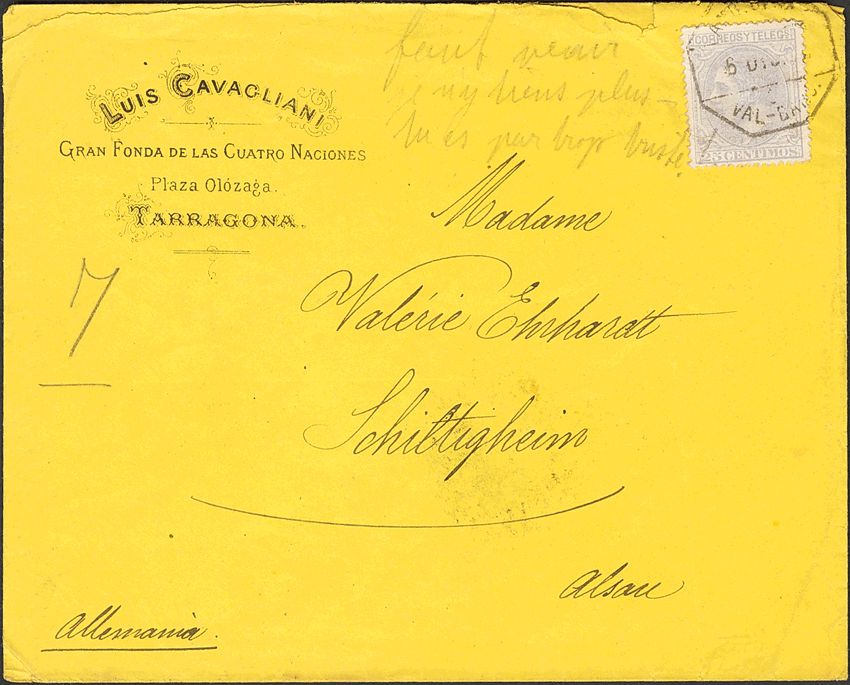 LUIS CAVAGLIANI
GRAN FONDA DE LAS CUATRO NACIONES
Plaza Olózaga.
TARRAGONA.
faut venir
je n'y tiens plus -
tu es par trop triste!
CORREOS Y TELEGS
25 CENTIMOS
VAL-BARC.
7
Madame
Valérie Ehrhardt
Schiltigheim
Alsace
Allemania.